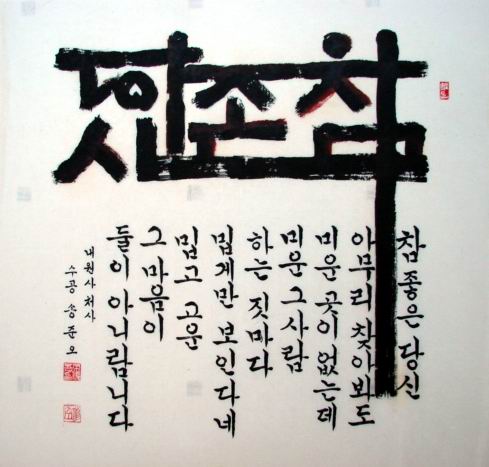 참 좋은 당신
아무리 찾아봐도
미운 곳이 없는데
미운 그사람
하는 짓마다
밉게만 보인다네
밉고 고운
그 마음이
둘이 아니랍니다
내원사 처사
수공 송준오